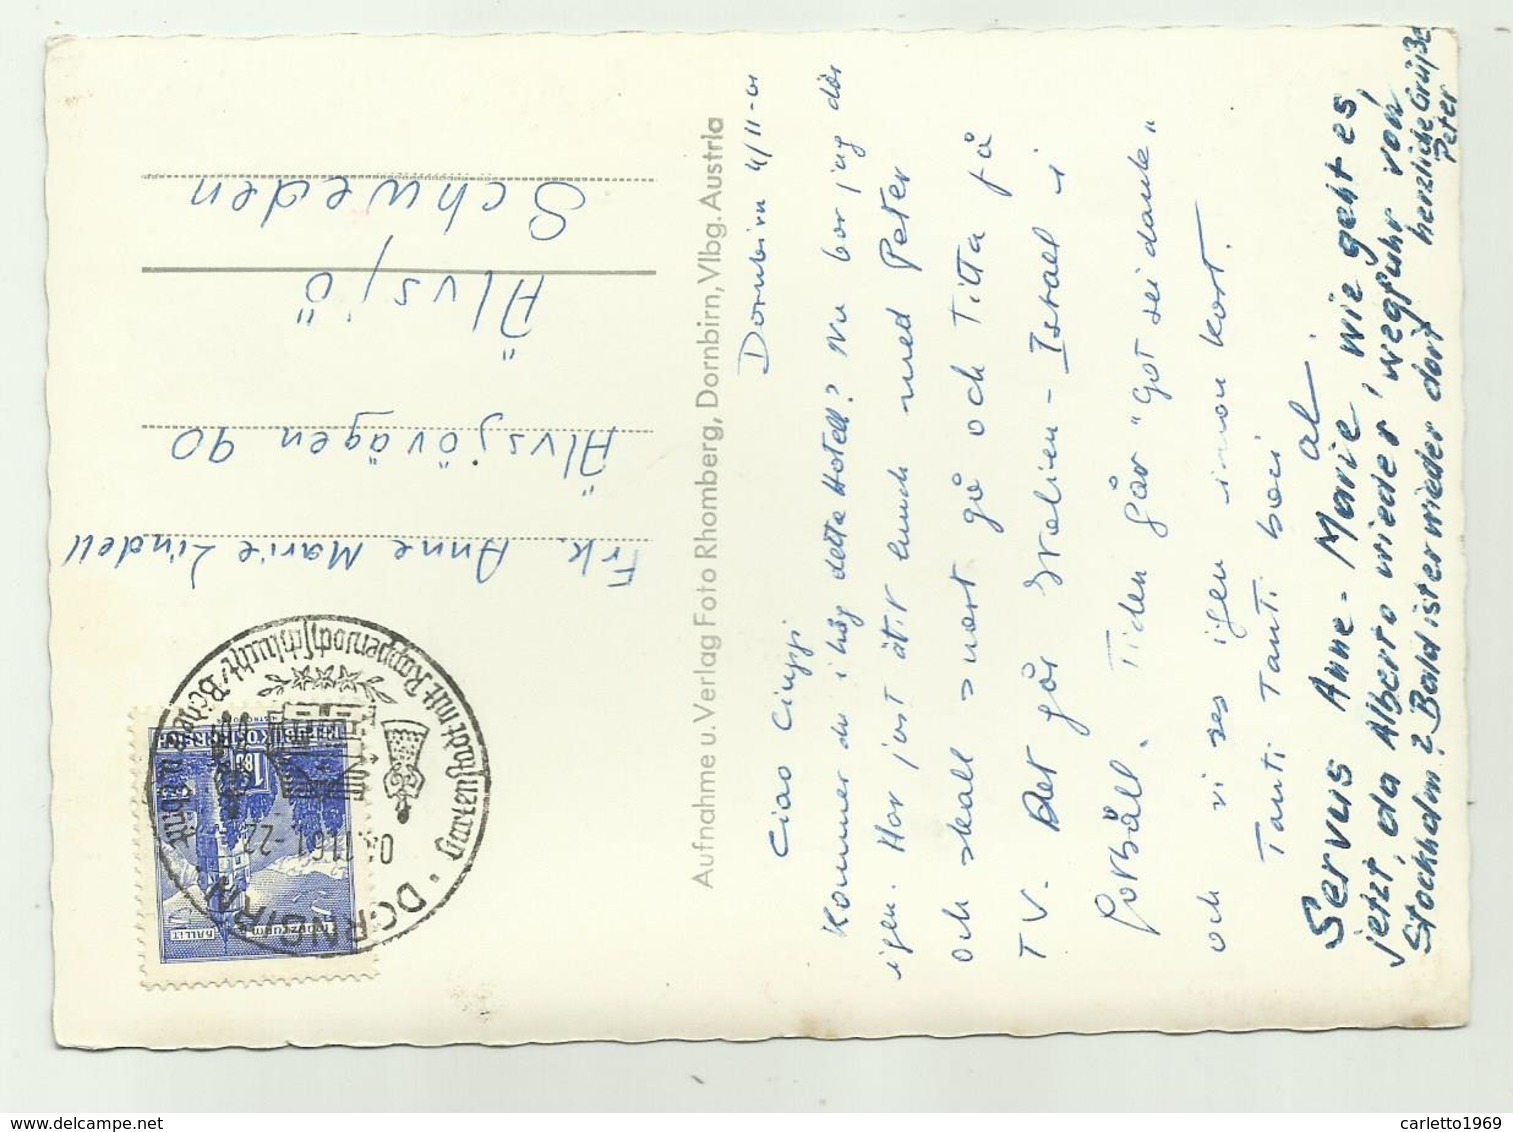 Dornbirn 4/11-61
Ciao Ciuppi
Kommer du ihåg detta Hotell? Nu bor jag där
igen. Har just ätit lunch med Peter
och skall snart gå och titta på
TV. Det går Italien - Israel i
fotbåll. Tiden går "Got sei dank"
och vi ses igen innan kort.
Tanti Tanti baci
al.
Servus Anne-Marie, wie geht es,
jetzt, da Alberto wieder wegfuhr von
Stockholm? Bald ist er wieder dort
herzliche Grüße
Peter
Aufnahme u. Verlag Foto Rhomberg, Dornbirn, Vlbg. Austria
Frk. Anne Marie Lindell
Älvsjövägen 90
Älvsjö
Schweden
DORNBIRN
.11.61 -22
Gartenstadt mit Rappenlochschlucht
MÜNZTURM
HALL I.T.
REPUBLIK ÖSTERREICH
carletto1969